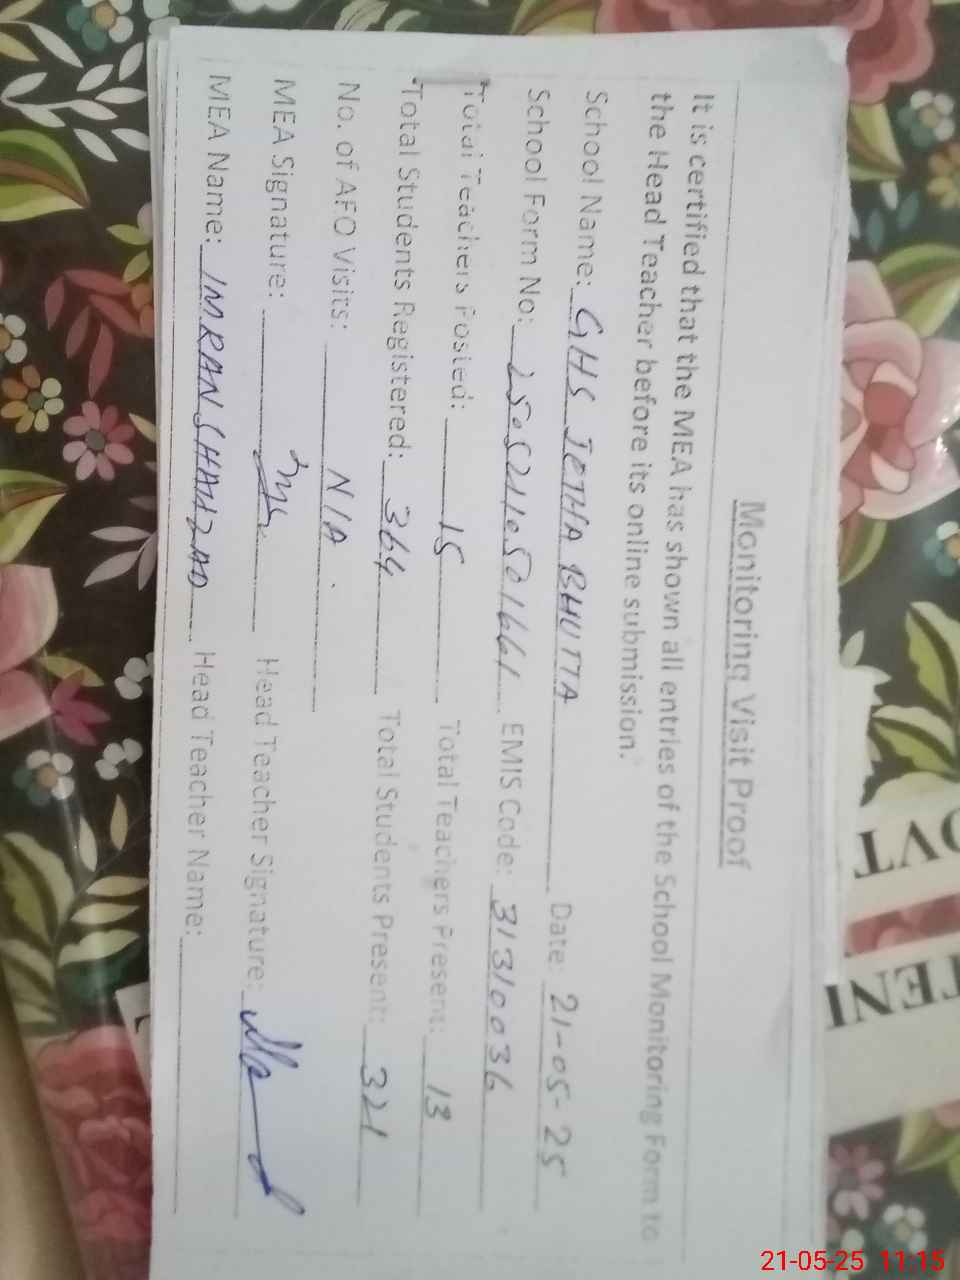 Monitoring Visit Proof
It is certified that the MEA has shown all entries of the School Monitoring Form to
the Head Teacher before its online submission.
School Name: GHS JETHA BHUTTA Date: 21-05-25
School Form No: 2505210501661 EMIS Code: 31310036
Total Teachers Posted: 15 Total Teachers Present: 13
Total Students Registered: 364 Total Students Present: 321
No. of AEO Visits: N/A
MEA Signature: Head Teacher Signature:
MEA Name: IMRAN SHAHZAD Head Teacher Name:
21-05-25 11:15